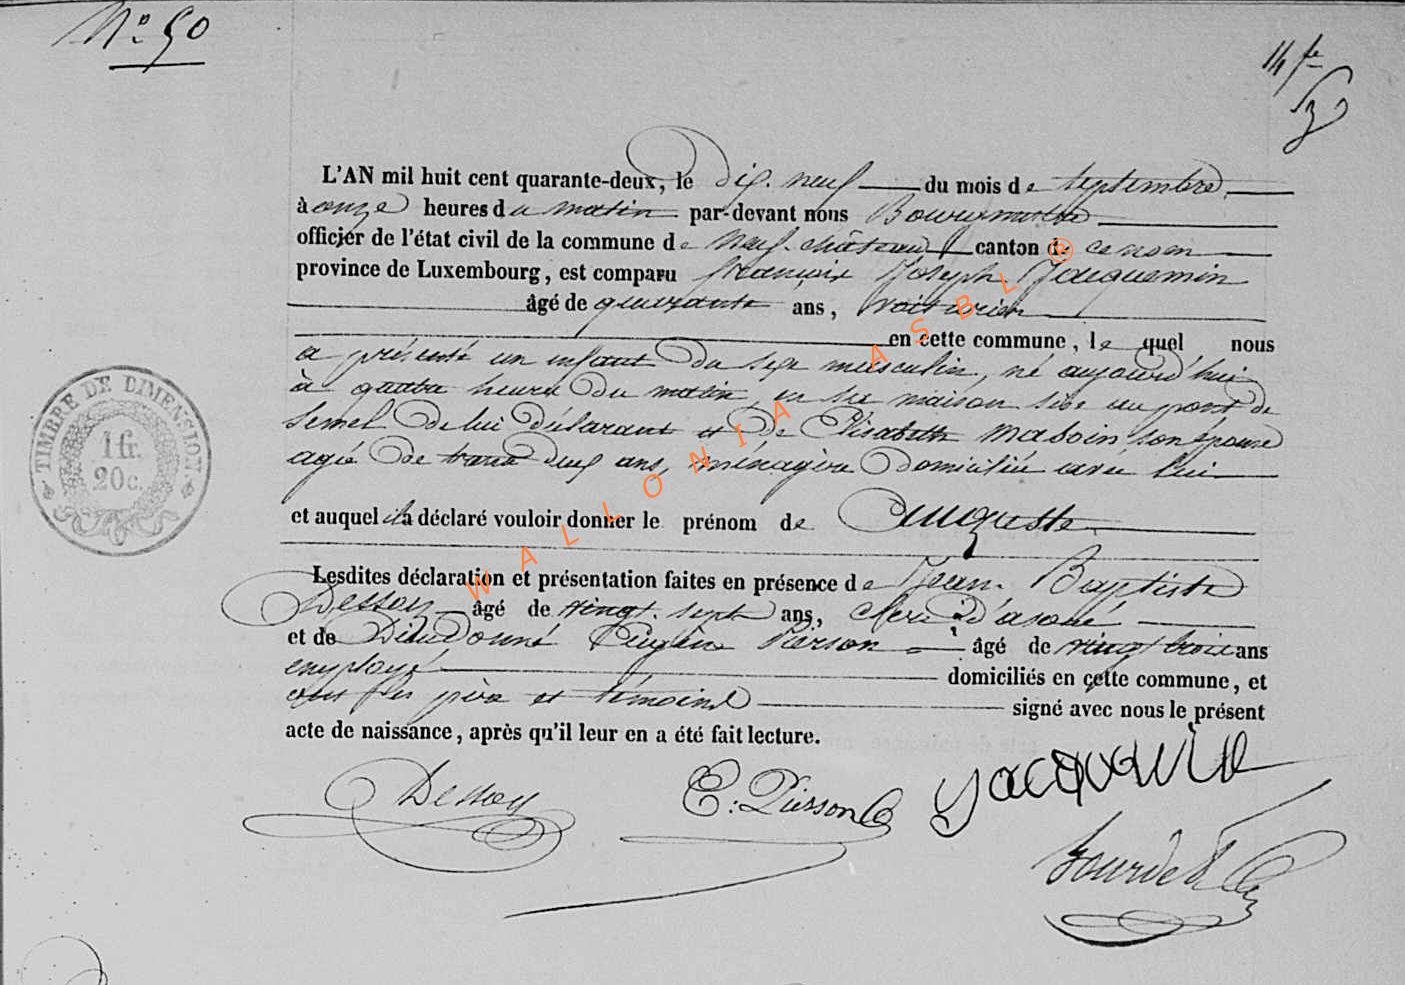 N° 50
14 f
L'AN mil huit cent quarante-deux, le Dix-neuf du mois de Septembre
à onze heures du matin par-devant nous Bourgmestre
officier de l'état civil de la commune de Neufchâteau canton de ce nom
province de Luxembourg, est comparu François Joseph Jacquemin
âgé de quarante ans, voiturier
en cette commune, le quel nous
a présenté un enfant du sexe masculin, né aujourd'hui
à quatre heures du matin, en sa maison sise au pont de
Semel de lui déclarant et de Elisabeth Maboin son épouse
agée de trente deux ans, ménagère domiciliée avec lui
et auquel il a déclaré vouloir donner le prénom de Auguste
Lesdites déclaration et présentation faites en présence de Jean Baptiste
Dessoy âgé de vingt-sept ans, clerc d'avoué
et de Dieudonné Eugène Pierson âgé de vingt trois ans
employé domiciliés en cette commune, et
ont les père et témoins signé avec nous le présent
acte de naissance, après qu'il leur en a été fait lecture.
Dessoy E: Pierson Jacqumin
TIMBRE DE DIMENSION
1 fr.
20 c.
WALLONIA ASBL ®